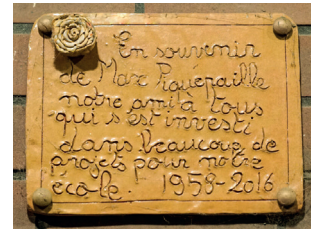 En souvenir
de Max Piquepaille
notre ami à tous
qui s'est investi
dans beaucoup de
projets pour notre
école. 1958-2016